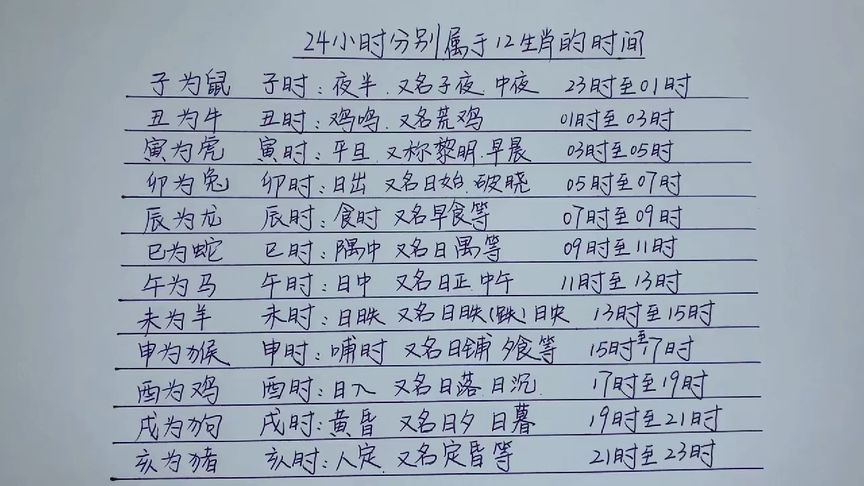 24小时分别属于12生肖的时间
子为鼠 子时:夜半.又名子夜.中夜 23时至01时
丑为牛 丑时:鸡鸣.又名荒鸡 01时至03时
寅为虎 寅时:平旦.又称黎明.早晨 03时至05时
卯为兔 卯时:日出 又名日始.破晓 05时至07时
辰为龙 辰时:食时 又名早食等 07时至09时
巳为蛇 巳时:隅中 又名日禺等 09时至11时
午为马 午时:日中 又名日正.中午 11时至13时
未为羊 未时:日昳 又名日昳(跌)日央 13时至15时
申为猴 申时:哺时 又名日铺 夕食等 15时至17时
酉为鸡 酉时:日入 又名日落.日沉. 17时至19时
戌为狗 戌时:黄昏 又名日夕 日暮 19时至21时
亥为猪 亥时:人定.又名定昏等 21时至23时